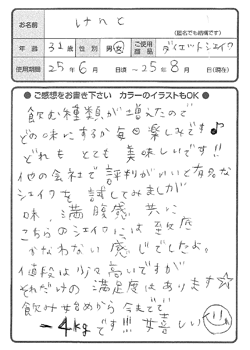 お名前 けんと
(匿名でも結構です)
年齢 32歳 性別 男・女 ご使用商品 ダイエットシェイク
使用期間 25年6月 日頃〜25年8月 日(現在)
●ご感想をお書き下さい カラーのイラストもOK●
飲む種類が増えたので
どの味にするか毎日楽しみです♪
どれもとても美味しいです!!
他の会社で評判がいいと有名な
シェイクを試してみましたが
味、満腹感共に
こちらのシェイクには全然
かなわない感じでしたよ。
値段は少々高いですが
それだけの満足度はあります☆
飲み始めから今までで
−4kgです!!!嬉しい